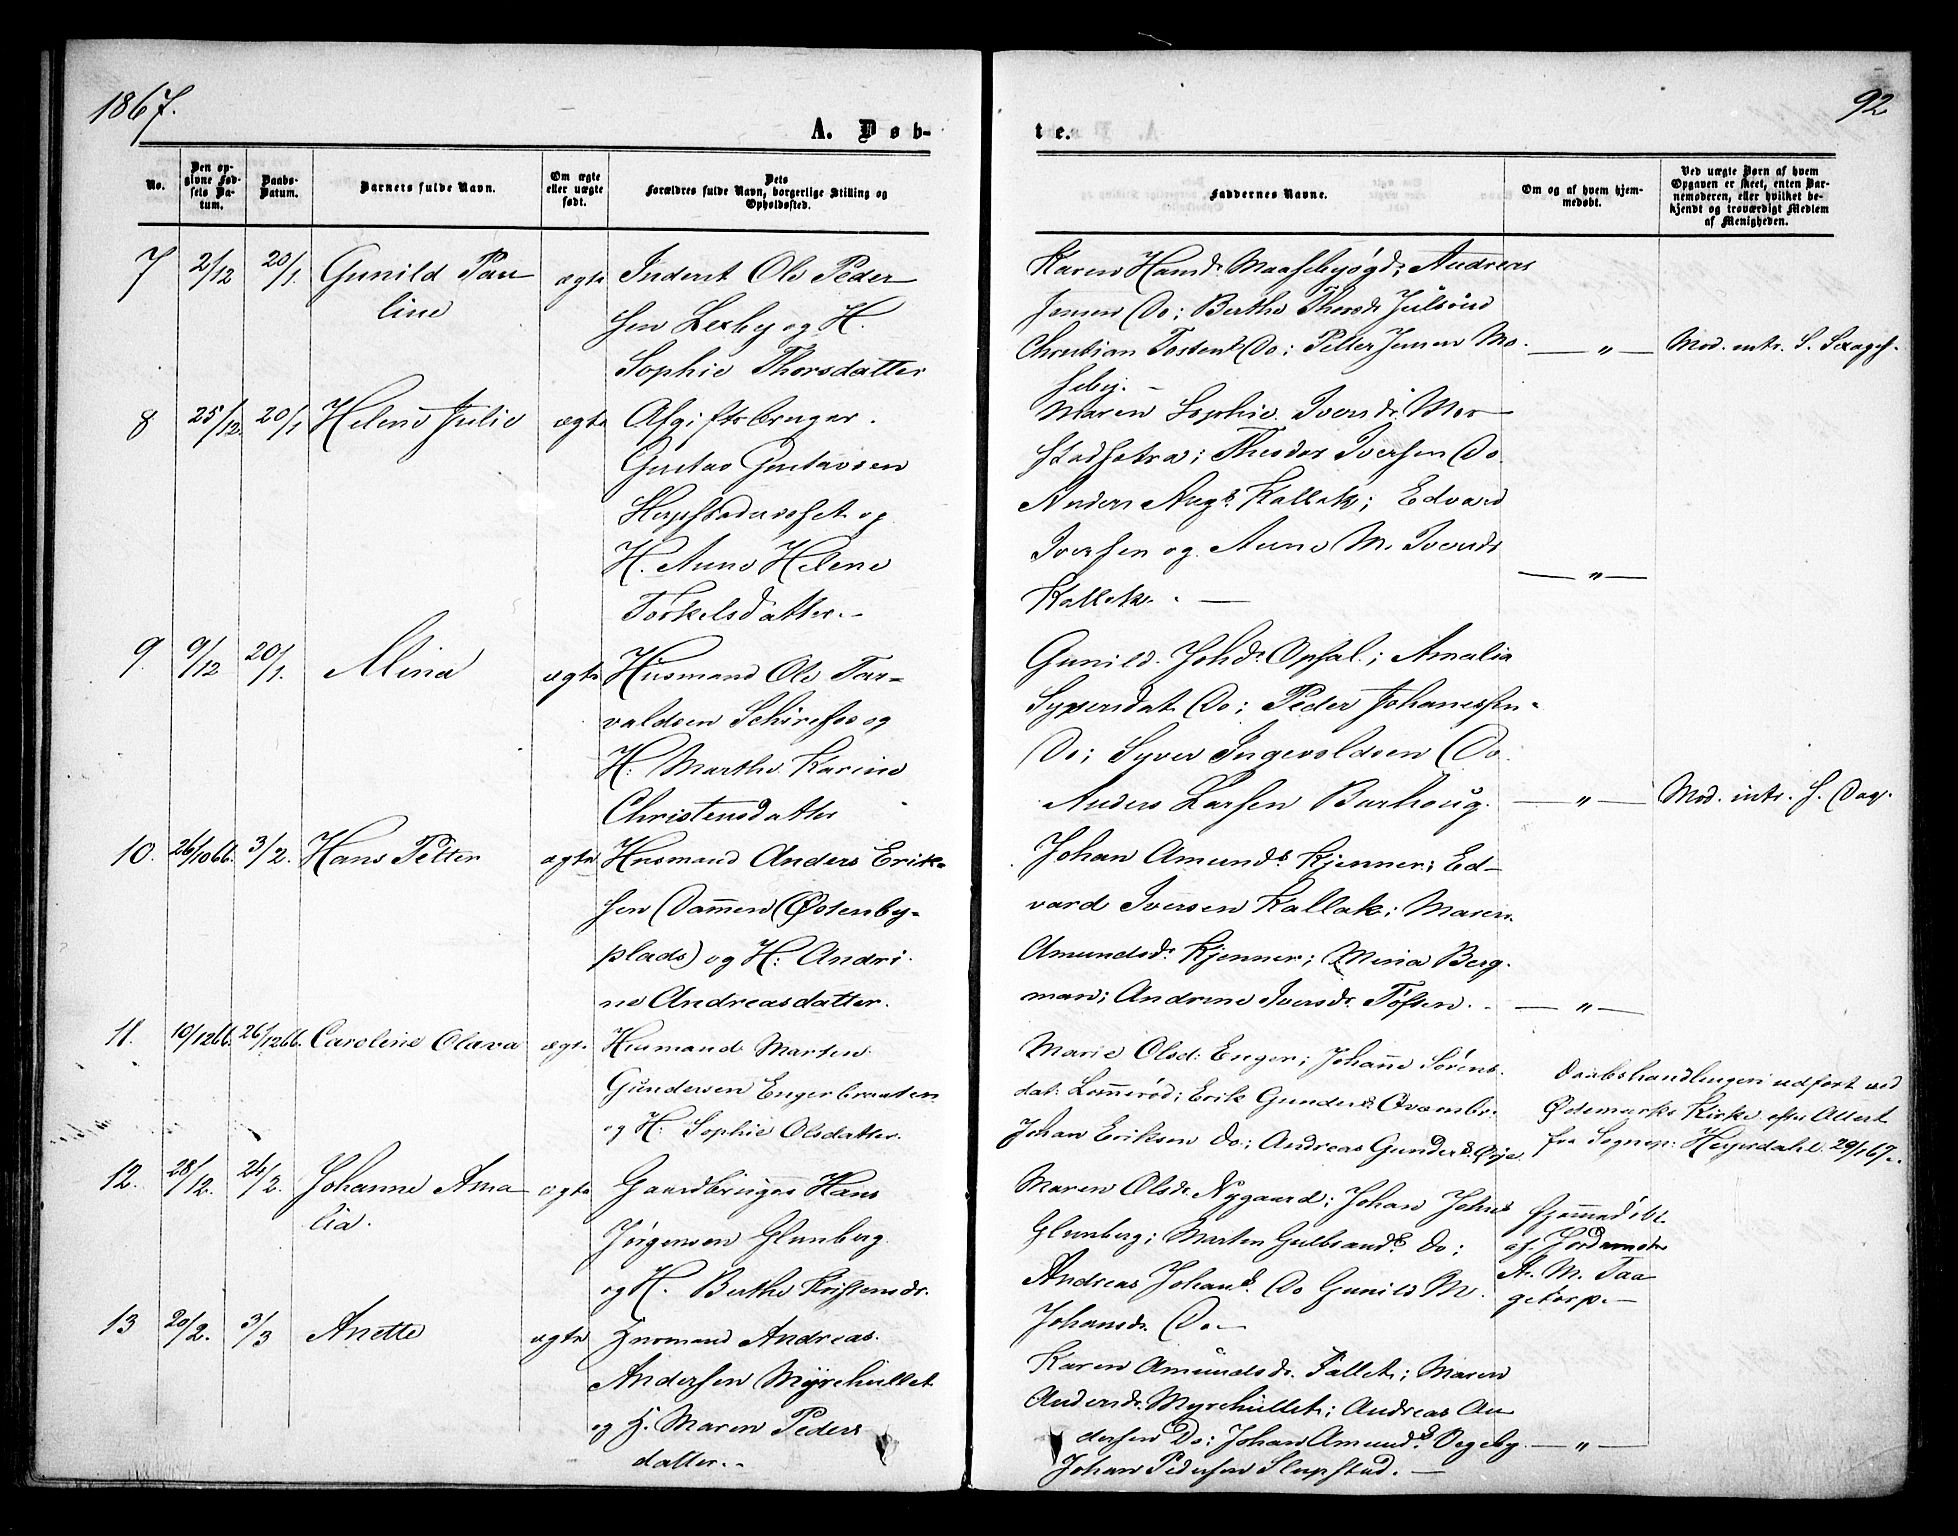 1867.
92
A. Døb-
te.
No.
Den opgivne Fødsels Datum.
Daabs-Datum.
Barnets fulde Navn.
Om ægte eller uægte født.
Dets Forældres fulde Navn, borgerlige Stilling og Opholdssted.
Faddernes Navne.
Om og af hvem hjemmedøbt.
Ved uægte Børn af hvem Opgaven er skeet, enten Barnemoderen, eller hvilket bekjendt og troværdigt Medlem af Menigheden.
7 2/12 20/1. Gunild Pau
line
ægte
Inderst Ole Peder
sen Lexby og H.
Sophie Thorsdatter
Karen Hansd. Andreas
Jensen Do; Berthe Thorsd.
Christian Do; Petter Jensen Mo
seby. —
— " —
Mod. intr. S.
8 25/12. 20/1 Helene Julie
ægte
Afgiftsbruger.
Gustav Gustavsen
og
H. Anne Helene
Torkelsdatter. -
Maren Sophie Iversdr. Mor
stadsetra; Theodor Iversen Do
Anders Kallak; Edvard
Iversen og Anne M. Iversdr
Kallak. —
— " —
9. 9/12 20/1. Mina
ægte
Husmand Ole Tar-
valdsen og
H: Marthe Karine
Christensdatter
Gunild Johd. Opsal; Amalia
Do; Peder Johanessen
Do; Syver Ingevoldsen Do
Anders Larsen Barhoug.
— " —
Mod. intr. S. Dag.
10. 26/10 66. 3/2. Hans Petter
ægte
Husmand Anders Erik-
sen Dammen (Østenby-
plads) og H: Andri
ne Andreasdatter.
Johan Amunds. Kjenner; Ed-
vard Iversen Kallak; Maren
Amundsdr. Kjenner; Mina Berg
man; Andrine Iversdr. Tofsen.
— " —
11. 19/12 66. 26/12 66. Caroline Olava
ægte
Husmand Marten
Gundersen Engerbraaten
og H. Sophie Olsdatter.
Marie Olsd: Enger; Johane Sørens
dat. Lomerød; Erik Gunders.
Johan Eriksen Do; Andreas Gunders. Ørje.
Daabshandlingen udført ved
Ødemarks Kirke efter Attest
fra Sognep: 29/1 67.
12. 28/12. 24/2. Johanne Ama
lia.
ægte
Gaardbruger Hans
Jørgensen Glenberg
og H. Berthe Kristensdr.
Maren Olsdr. Nygaard; Johan Johns
Glenberg; Marten Gulbrands. Do;
Andreas Johans. Do Gunild M.
Johansdr. Do —
Hjemmedøbt
af Jordemoder
A. M. Taa
getorp. —
13 20/2. 3/3 Anette
ægte
Husmand Andreas
Andersen Myrehullet
og H. Maren Peders
datter. -
Karen Amundsdr. Tallet; Maren
Andersdr. Myrehullet; Andreas An
dersen Do; Johan Amunds. Degeby
Johan Pedersen Slupstad. —
— " —